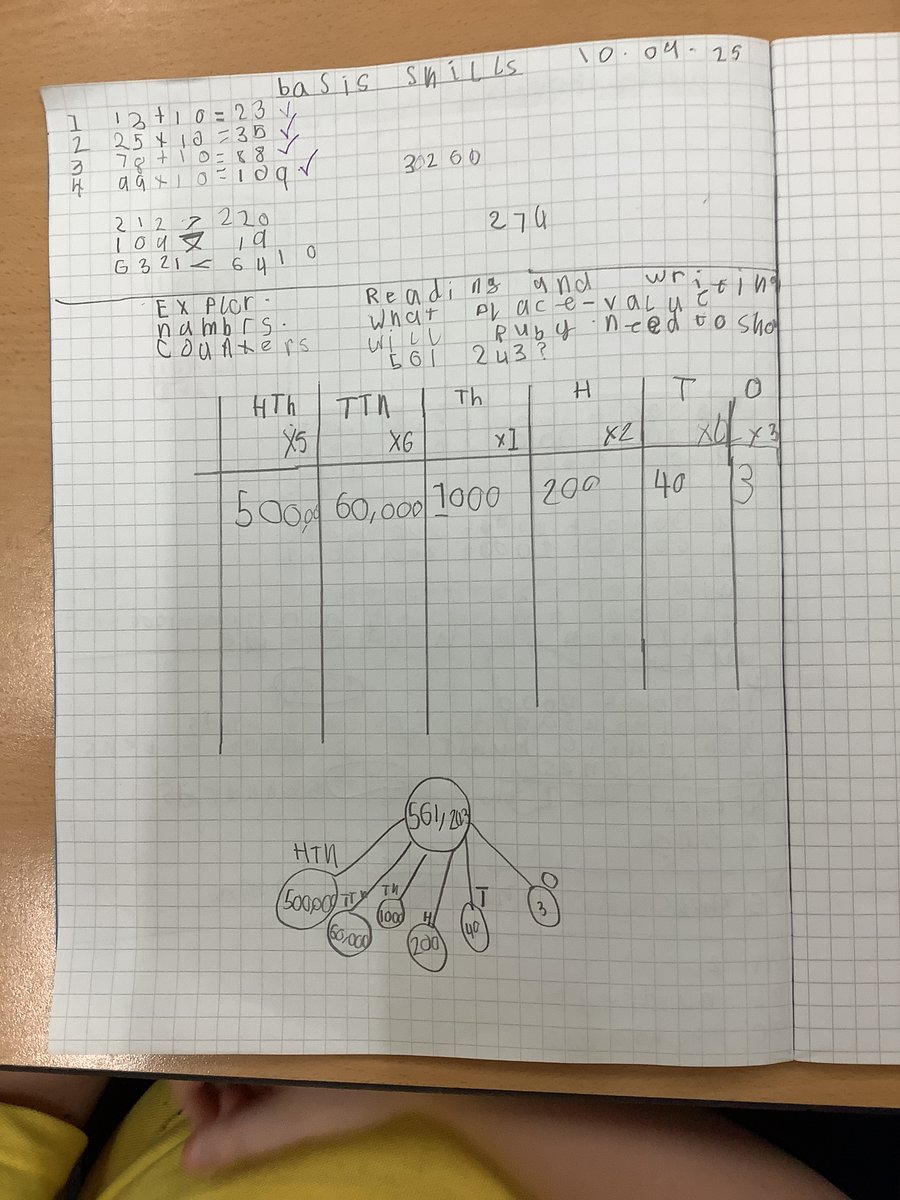 basis skills 10.04.25
1 13+10=23 ✓
2 25+10=35 ✓
3 78+10=88 ✓
4 99+10=109 ✓
30260
212 > 220
109 19
274
6321 < 6410
Explor. Reading and writing
nambrs. What place-value
Counters will Ruby need to sho
561 243?
HTh TTh Th H T O
x5 x6 x1 x2 x3
60,000 1000 200 40 3
561,203
HTh
TTh Th H T O
500,00 60,000 1000 200 40 3